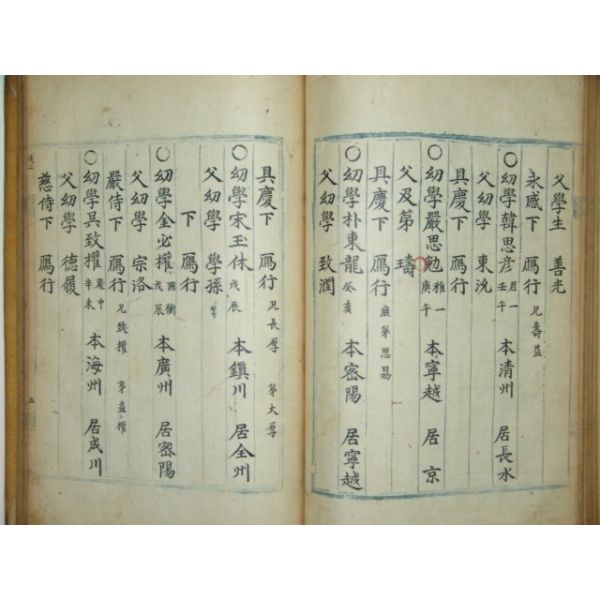 父學生 善光
永感下 鴈行 兄壽益
○幼學韓思彦 君一 壬午 本清州 居長水
父幼學 東洸
具慶下 鴈行
○幼學嚴思勉 雅一 庚午 本寧越 居京
父及第 璹
具慶下 鴈行 庶弟思勗
○幼學朴東龍 癸亥 本密陽 居寧越
父幼學 致潤
具慶下 鴈行 兄長厚 弟大厚
○幼學宋玉休 戊辰 本鎮川 居全州
父幼學 學孫
下 鴈行
○幼學金必權 國衡 戊辰 本廣州 居密陽
父幼學 宗洛
嚴侍下 鴈行 兄致權 弟益權
○幼學吳致權 辛未 本海州 居成川
父幼學 德履
慈侍下 鴈行